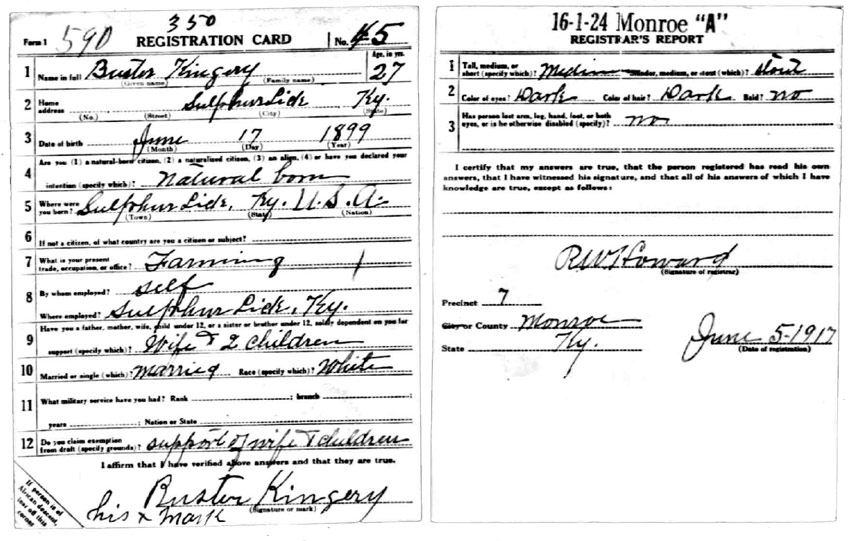 350
Form 1 590 REGISTRATION CARD No. 45
1 Name in full Buster Kingery Age, in yrs. 27
(Given name) (Family name)
2 Home address Sulphur Lick Ky.
(No.) (Street) (City) (State)
3 Date of birth June 17 1899
(Month) (Day) (Year)
Are you (1) a natural-born citizen, (2) a naturalized citizen, (3) an alien, (4) or have you declared your
4 intention (specify which)? Natural born
5 Where were you born? Sulphur Lick, Ky. U.S.A.
(Town) (State) (Nation)
6 If not a citizen, of what country are you a citizen or subject?
7 What is your present trade, occupation, or office? Farming
8 By whom employed? self
Where employed? Sulphur Lick, Ky.
Have you a father, mother, wife, child under 12, or a sister or brother under 12, solely dependent on you for
9 support (specify which)? Wife & 2 children
10 Married or single (which)? Married Race (specify which)? White
11 What military service have you had? Rank ; branch ;
years ; Nation or State
12 Do you claim exemption from draft (specify grounds)? support of wife & children
I affirm that I have verified above answers and that they are true.
Buster Kingery
his x mark (Signature or mark)
If person is of
African descent,
tear off this
corner
16-1-24 Monroe "A"
REGISTRAR'S REPORT
1 Tall, medium, or short (specify which)? Medium Slender, medium, or stout (which)? stout
2 Color of eyes? Dark Color of hair? Dark Bald? no
3 Has person lost arm, leg, hand, foot, or both eyes, or is he otherwise disabled (specify)? no
I certify that my answers are true, that the person registered has read his own
answers, that I have witnessed his signature, and that all of his answers of which I have
knowledge are true, except as follows:
R W Howard
(Signature of registrar)
Precinct 7
City or County Monroe
State Ky.
June 5-1917
(Date of registration)